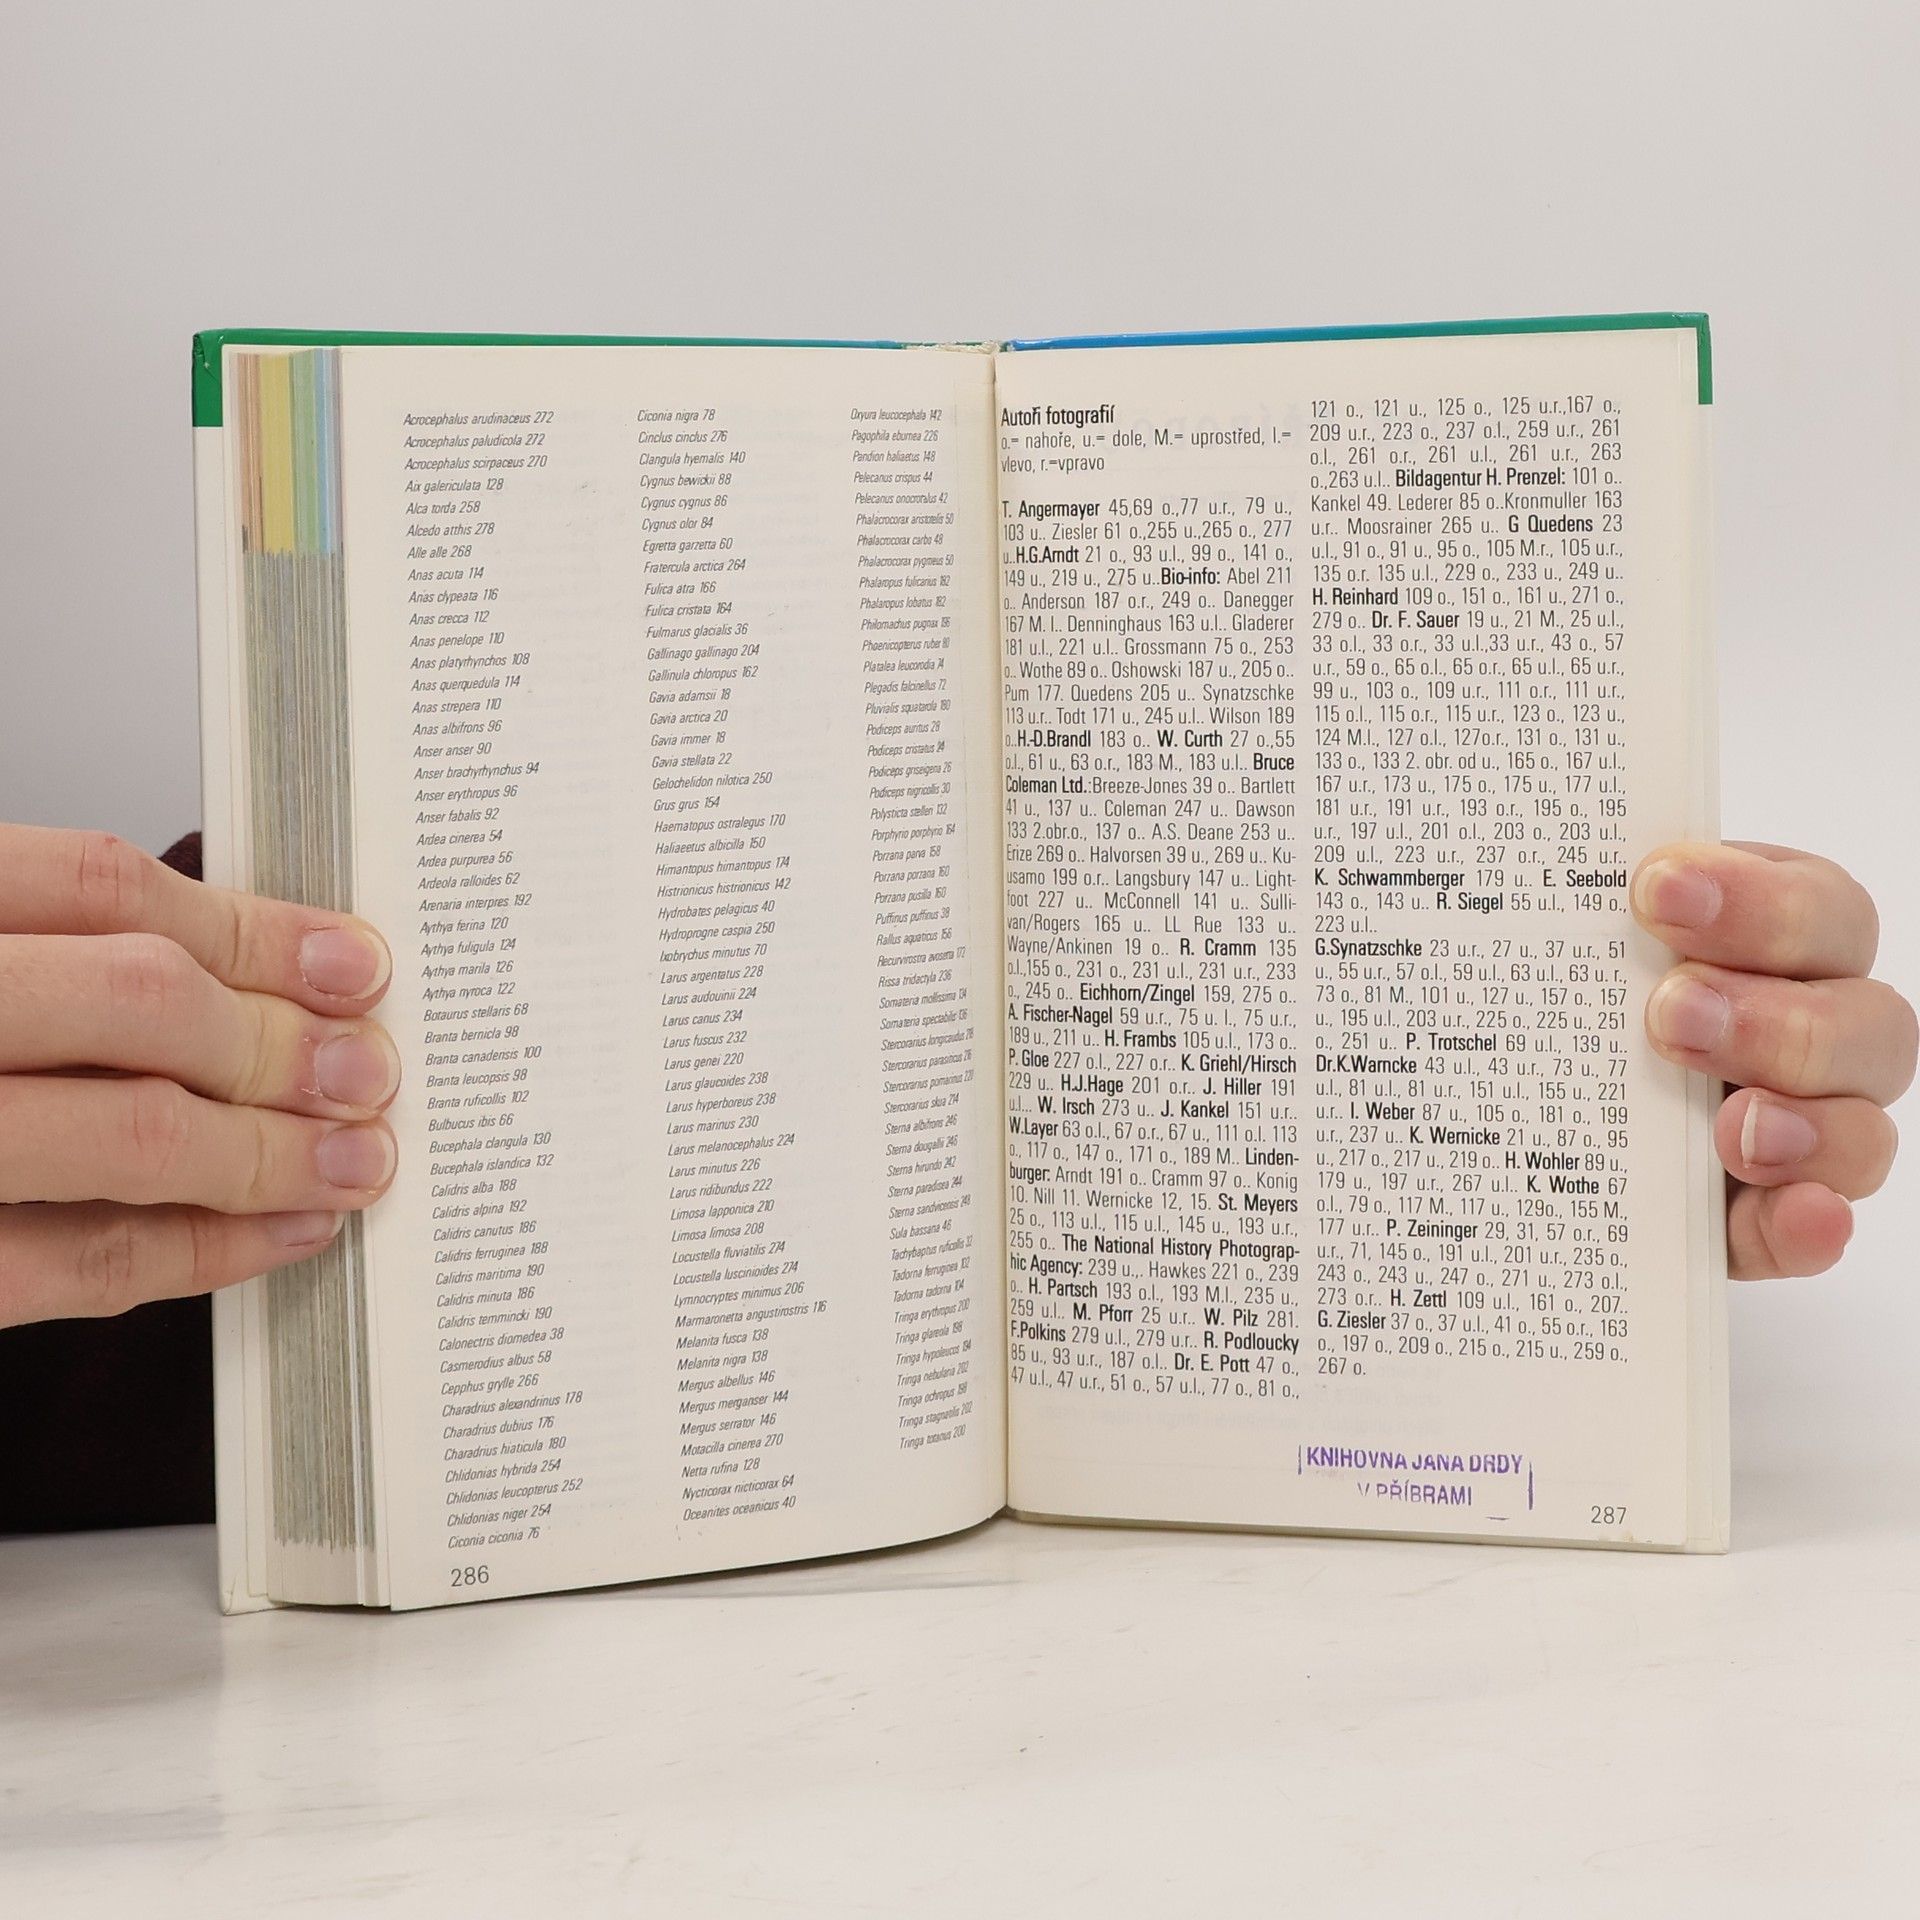 Acrocephalus arudinaceus 272
Acrocephalus paludicola 272
Acrocephalus scirpaceus 270
Aix galericulata 128
Alca torda 258
Alcedo atthis 278
Alle alle 268
Anas acuta 114
Anas clypeata 116
Anas crecca 112
Anas penelope 110
Anas platyrhynchos 108
Anas querquedula 114
Anas strepera 110
Anas albifrons 96
Anser anser 90
Anser brachyrhynchus 94
Anser erythropus 96
Anser fabalis 92
Ardea cinerea 54
Ardea purpurea 56
Ardeola ralloides 62
Arenaria interpres 192
Aythya ferina 120
Aythya fuligula 124
Aythya marila 126
Aythya nyroca 122
Botaurus stellaris 68
Branta bernicla 98
Branta canadensis 100
Branta leucopsis 98
Branta ruficollis 102
Bulbucus ibis 66
Bucephala clangula 130
Bucephala islandica 132
Calidris alba 188
Calidris alpina 192
Calidris canutus 186
Calidris ferruginea 188
Calidris maritima 190
Calidris minuta 186
Calidris temmincki 190
Calonectris diomedea 38
Casmerodius albus 58
Cepphus grylle 266
Charadrius alexandrinus 178
Charadrius dubius 176
Charadrius hiaticula 180
Chlidonias hybrida 254
Chlidonias leucopterus 252
Chlidonias niger 254
Ciconia ciconia 76
Ciconia nigra 78
Cinclus cinclus 276
Clangula hyemalis 140
Cygnus bewickii 88
Cygnus cygnus 86
Cygnus olor 84
Egretta garzetta 60
Fratercula arctica 264
Fulica atra 166
Fulica cristata 164
Fulmarus glacialis 36
Gallinago gallinago 204
Gallinula chloropus 162
Gavia adamsii 18
Gavia arctica 20
Gavia immer 18
Gavia stellata 22
Gelochelidon nilotica 250
Grus grus 154
Haematopus ostralegus 170
Haliaeetus albicilla 150
Himantopus himantopus 174
Histrionicus histrionicus 142
Hydrobates pelagicus 40
Hydroprogne caspia 250
Ixobrychus minutus 70
Larus argentatus 228
Larus audouinii 224
Larus canus 234
Larus fuscus 232
Larus genei 220
Larus glaucoides 238
Larus hyperboreus 238
Larus marinus 230
Larus melanocephalus 224
Larus minutus 226
Larus ridibundus 222
Limosa lapponica 210
Limosa limosa 208
Locustella fluviatilis 274
Locustella luscinioides 274
Lymnocryptes minimus 206
Marmaronetta angustirostris 116
Melanita fusca 138
Melanita nigra 138
Mergus albellus 146
Mergus merganser 144
Mergus serrator 146
Motacilla cinerea 270
Netta rufina 128
Nycticorax nicticorax 64
Oceanites oceanicus 40
Oxyura leucocephala 142
Pagophila eburnea 226
Pandion haliaetus 148
Pelecanus crispus 44
Pelecanus onocrotalus 42
Phalacrocorax aristotelis 50
Phalacrocorax carbo 48
Phalacrocorax pygmeus 50
Phalaropus fulicarius 182
Phalaropus lobatus 182
Philomachus pugnax 196
Phoenicopterus ruber 80
Platalea leucorodia 74
Plegadis falcinellus 72
Pluvialis squatarola 180
Podiceps auritus 28
Podiceps cristatus 24
Podiceps griseigena 26
Podiceps nigricollis 30
Polysticta stelleri 132
Porphyrio porphyrio 164
Porzana parva 158
Porzana porzana 160
Porzana pusilla 160
Puffinus puffinus 38
Rallus aquaticus 156
Recurvirostra avosetta 172
Rissa tridactyla 236
Somateria mollissima 134
Somateria spectabilis 136
Stercorarius longicaudus
Stercorarius parasiticus
Stercorarius pomarinus 220
Stercorarius skua 214
Sterna albifrons 246
Sterna dougallii 246
Sterna hirundo 242
Sterna paradisea 244
Sterna sandvicensis
Sula bassana 46
Tachybaptus ruficollis 32
Tadorna ferruginea
Tadorna tadorna 104
Tringa erythropus 200
Tringa glareola 198
Tringa hypoleucos 194
Tringa nebularia 202
Tringa ochropus 198
Tringa stagnatilis 202
Tringa totanus 200
286
Autoři fotografií
o.= nahoře, u.= dole, M.= uprostřed, l.=
vlevo, r.=vpravo
T. Angermayer 45,69 o.,77 u.r., 79 u.,
103 u.. Ziesler 61 o.,255 u.,265 o., 277
u..H.G.Arndt 21 o., 93 u.l., 99 o., 141 o.,
149 u., 219 u., 275 u..Bio-info: Abel 211
o.. Anderson 187 o.r., 249 o.. Danegger
167 M. l.. Denninghaus 163 u.l.. Gladerer
181 u.l., 221 u.l.. Grossmann 75 o., 253
o.. Wothe 89 o.. Oshowski 187 u., 205 o..
Pum 177. Quedens 205 u.. Synatzschke
113 u.r.. Todt 171 u., 245 u.l.. Wilson 189
o..H.-D.Brandl 183 o.. W. Curth 27 o.,55
o.l., 61 u., 63 o.r., 183 M., 183 u.l.. Bruce
Coleman Ltd.:Breeze-Jones 39 o.. Bartlett
41 u., 137 u.. Coleman 247 u.. Dawson
133 2.obr.o., 137 o.. A.S. Deane 253 u..
Erize 269 o.. Halvorsen 39 u., 269 u.. Ku-
usamo 199 o.r.. Langsbury 147 u.. Light-
foot 227 u.. McConnell 141 u.. Sulli-
van/Rogers 165 u.. LL Rue 133 u..
Wayne/Ankinen 19 o.. R. Cramm 135
o.l.,155 o., 231 o., 231 u.l., 231 u.r., 233
o., 245 o.. Eichhorn/Zingel 159, 275 o..
A. Fischer-Nagel 59 u.r., 75 u. l., 75 u.r.,
189 u., 211 u.. H. Frambs 105 u.l., 173 o..
P. Gloe 227 o.l., 227 o.r.. K. Griehl/Hirsch
229 u.. H.J.Hage 201 o.r.. J. Hiller 191
u.l... W. Irsch 273 u.. J. Kankel 151 u.r..
W.Layer 63 o.l., 67 o.r., 67 u., 111 o.l. 113
o., 117 o., 147 o., 171 o., 189 M.. Linden-
burger: Arndt 191 o.. Cramm 97 o.. Konig
10. Nill 11. Wernicke 12, 15. St. Meyers
25 o., 113 u.l., 115 u.l., 145 u., 193 u.r.,
255 o.. The National History Photograp-
hic Agency: 239 u.,. Hawkes 221 o., 239
o.. H. Partsch 193 o.l., 193 M.l., 235 u.,
259 u.l.. M. Pforr 25 u.r.. W. Pilz 281.
F.Polkins 279 u.l., 279 u.r.. R. Podloucky
85 u., 93 u.r., 187 o.l.. Dr. E. Pott 47 o.,
47 u.l., 47 u.r., 51 o., 57 u.l., 77 o., 81 o.,
121 o., 121 u., 125 o., 125 u.r.,167 o.,
209 u.r., 223 o., 237 o.l., 259 u.r., 261
o.l., 261 o.r., 261 u.l., 261 u.r., 263
o.,263 u.l.. Bildagentur H. Prenzel: 101 o..
Kankel 49. Lederer 85 o..Kronmuller 163
u.r.. Moosrainer 265 u.. G Quedens 23
u.l., 91 o., 91 u., 95 o., 105 M.r., 105 u.r.,
135 o.r. 135 u.l., 229 o., 233 u., 249 u..
H. Reinhard 109 o., 151 o., 161 u., 271 o.,
279 o.. Dr. F. Sauer 19 u., 21 M., 25 u.l.,
33 o.l., 33 o.r., 33 u.l.,33 u.r., 43 o., 57
u.r., 59 o., 65 o.l., 65 o.r., 65 u.l., 65 u.r.,
99 u., 103 o., 109 u.r., 111 o.r., 111 u.r.,
115 o.l., 115 o.r., 115 u.r., 123 o., 123 u.,
124 M.l., 127 o.l., 127o.r., 131 o., 131 u.,
133 o., 133 2. obr. od u., 165 o., 167 u.l.,
167 u.r., 173 u., 175 o., 175 u., 177 u.l.,
181 u.r., 191 u.r., 193 o.r., 195 o., 195
u.r., 197 u.l., 201 o.l., 203 o., 203 u.l.,
209 u.l., 223 u.r., 237 o.r., 245 u.r..
K. Schwammberger 179 u.. E. Seebold
143 o., 143 u.. R. Siegel 55 u.l., 149 o.,
223 u.l..
G.Synatzschke 23 u.r., 27 u., 37 u.r., 51
u., 55 u.r., 57 o.l., 59 u.l., 63 u.l., 63 u. r.,
73 o., 81 M., 101 u., 127 u., 157 o., 157
u., 195 u.l., 203 u.r., 225 o., 225 u., 251
o., 251 u.. P. Trotschel 69 u.l., 139 u..
Dr.K.Warncke 43 u.l., 43 u.r., 73 u., 77
u.l., 81 u.l., 81 u.r., 151 u.l., 155 u., 221
u.r.. I. Weber 87 u., 105 o., 181 o., 199
u.r., 237 u.. K. Wernicke 21 u., 87 o., 95
u., 217 o., 217 u., 219 o.. H. Wohler 89 u.,
179 u., 197 u.r., 267 u.l.. K. Wothe 67
o.l., 79 o., 117 M., 117 u., 129o., 155 M.,
177 u.r.. P. Zeininger 29, 31, 57 o.r., 69
u.r., 71, 145 o., 191 u.l., 201 u.r., 235 o.,
243 o., 243 u., 247 o., 271 u., 273 o.l.,
273 o.r.. H. Zettl 109 u.l., 161 o., 207..
G. Ziesler 37 o., 37 u.l., 41 o., 55 o.r., 163
o., 197 o., 209 o., 215 o., 215 u., 259 o.,
267 o.
KNIHOVNA JANA DRDY
V PŘÍBRAMI
287